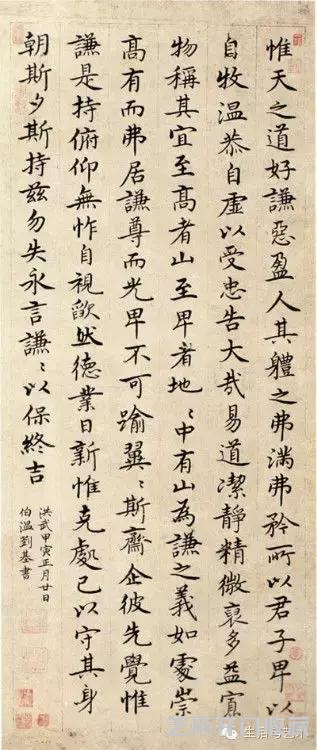 惟天之道好謙惡盈人其體之弗滿弗矜所以君子卑以
自牧温恭自虛以受忠告大哉易道潔靜精微裒多益寡
物稱其宜至髙者山至卑者地〻中有山為謙之義如處崇
髙有而弗居謙尊而光卑不可踰翼〻斯齋企彼先覺惟
謙是持俯仰無怍自視欿然德業日新惟克處己以守其身
朝斯夕斯持茲勿失永言謙〻以保終吉
洪武甲寅正月廿日
伯温劉基書
生活与艺术